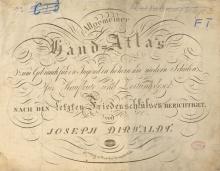 Allgemeiner
Hand-Atlas
zum Gebrauch für die Jugend in höhern und niedern Schulen,
für Kaufleute und Zeitungsleser.
NACH DEN letzten Friedensschlüssen BERICHTIGET,
von
JOSEPH DIRWALDT.